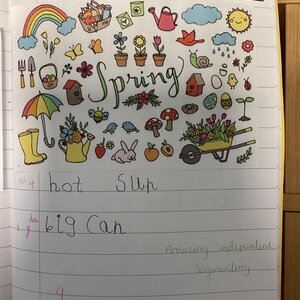 Spring
hot sun
big Can
Amazing independent
segmenting